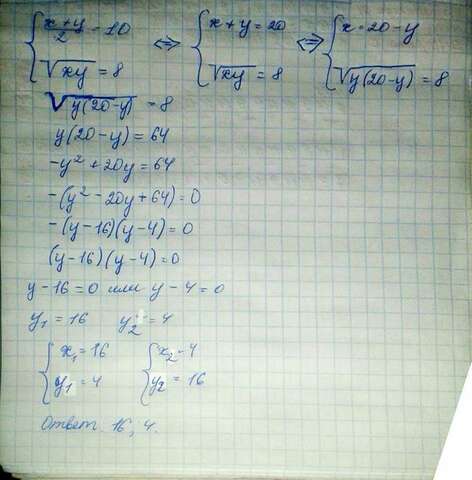 { (x+y)/2 = 10 <=> { x+y=20 <=> { x=20-y
√xy = 8 { √xy = 8 { √y(20-y) = 8
√y(20-y) = 8
y(20-y) = 64
-y² + 20y = 64
-(y² - 20y + 64) = 0
-(y-16)(y-4) = 0
(y-16)(y-4) = 0
y-16=0 или y-4=0
y₁ = 16 y₂ = 4
{ x₁ = 16 { x₂ - 4
y₁ = 4 y₂ = 16
Ответ 16; 4.